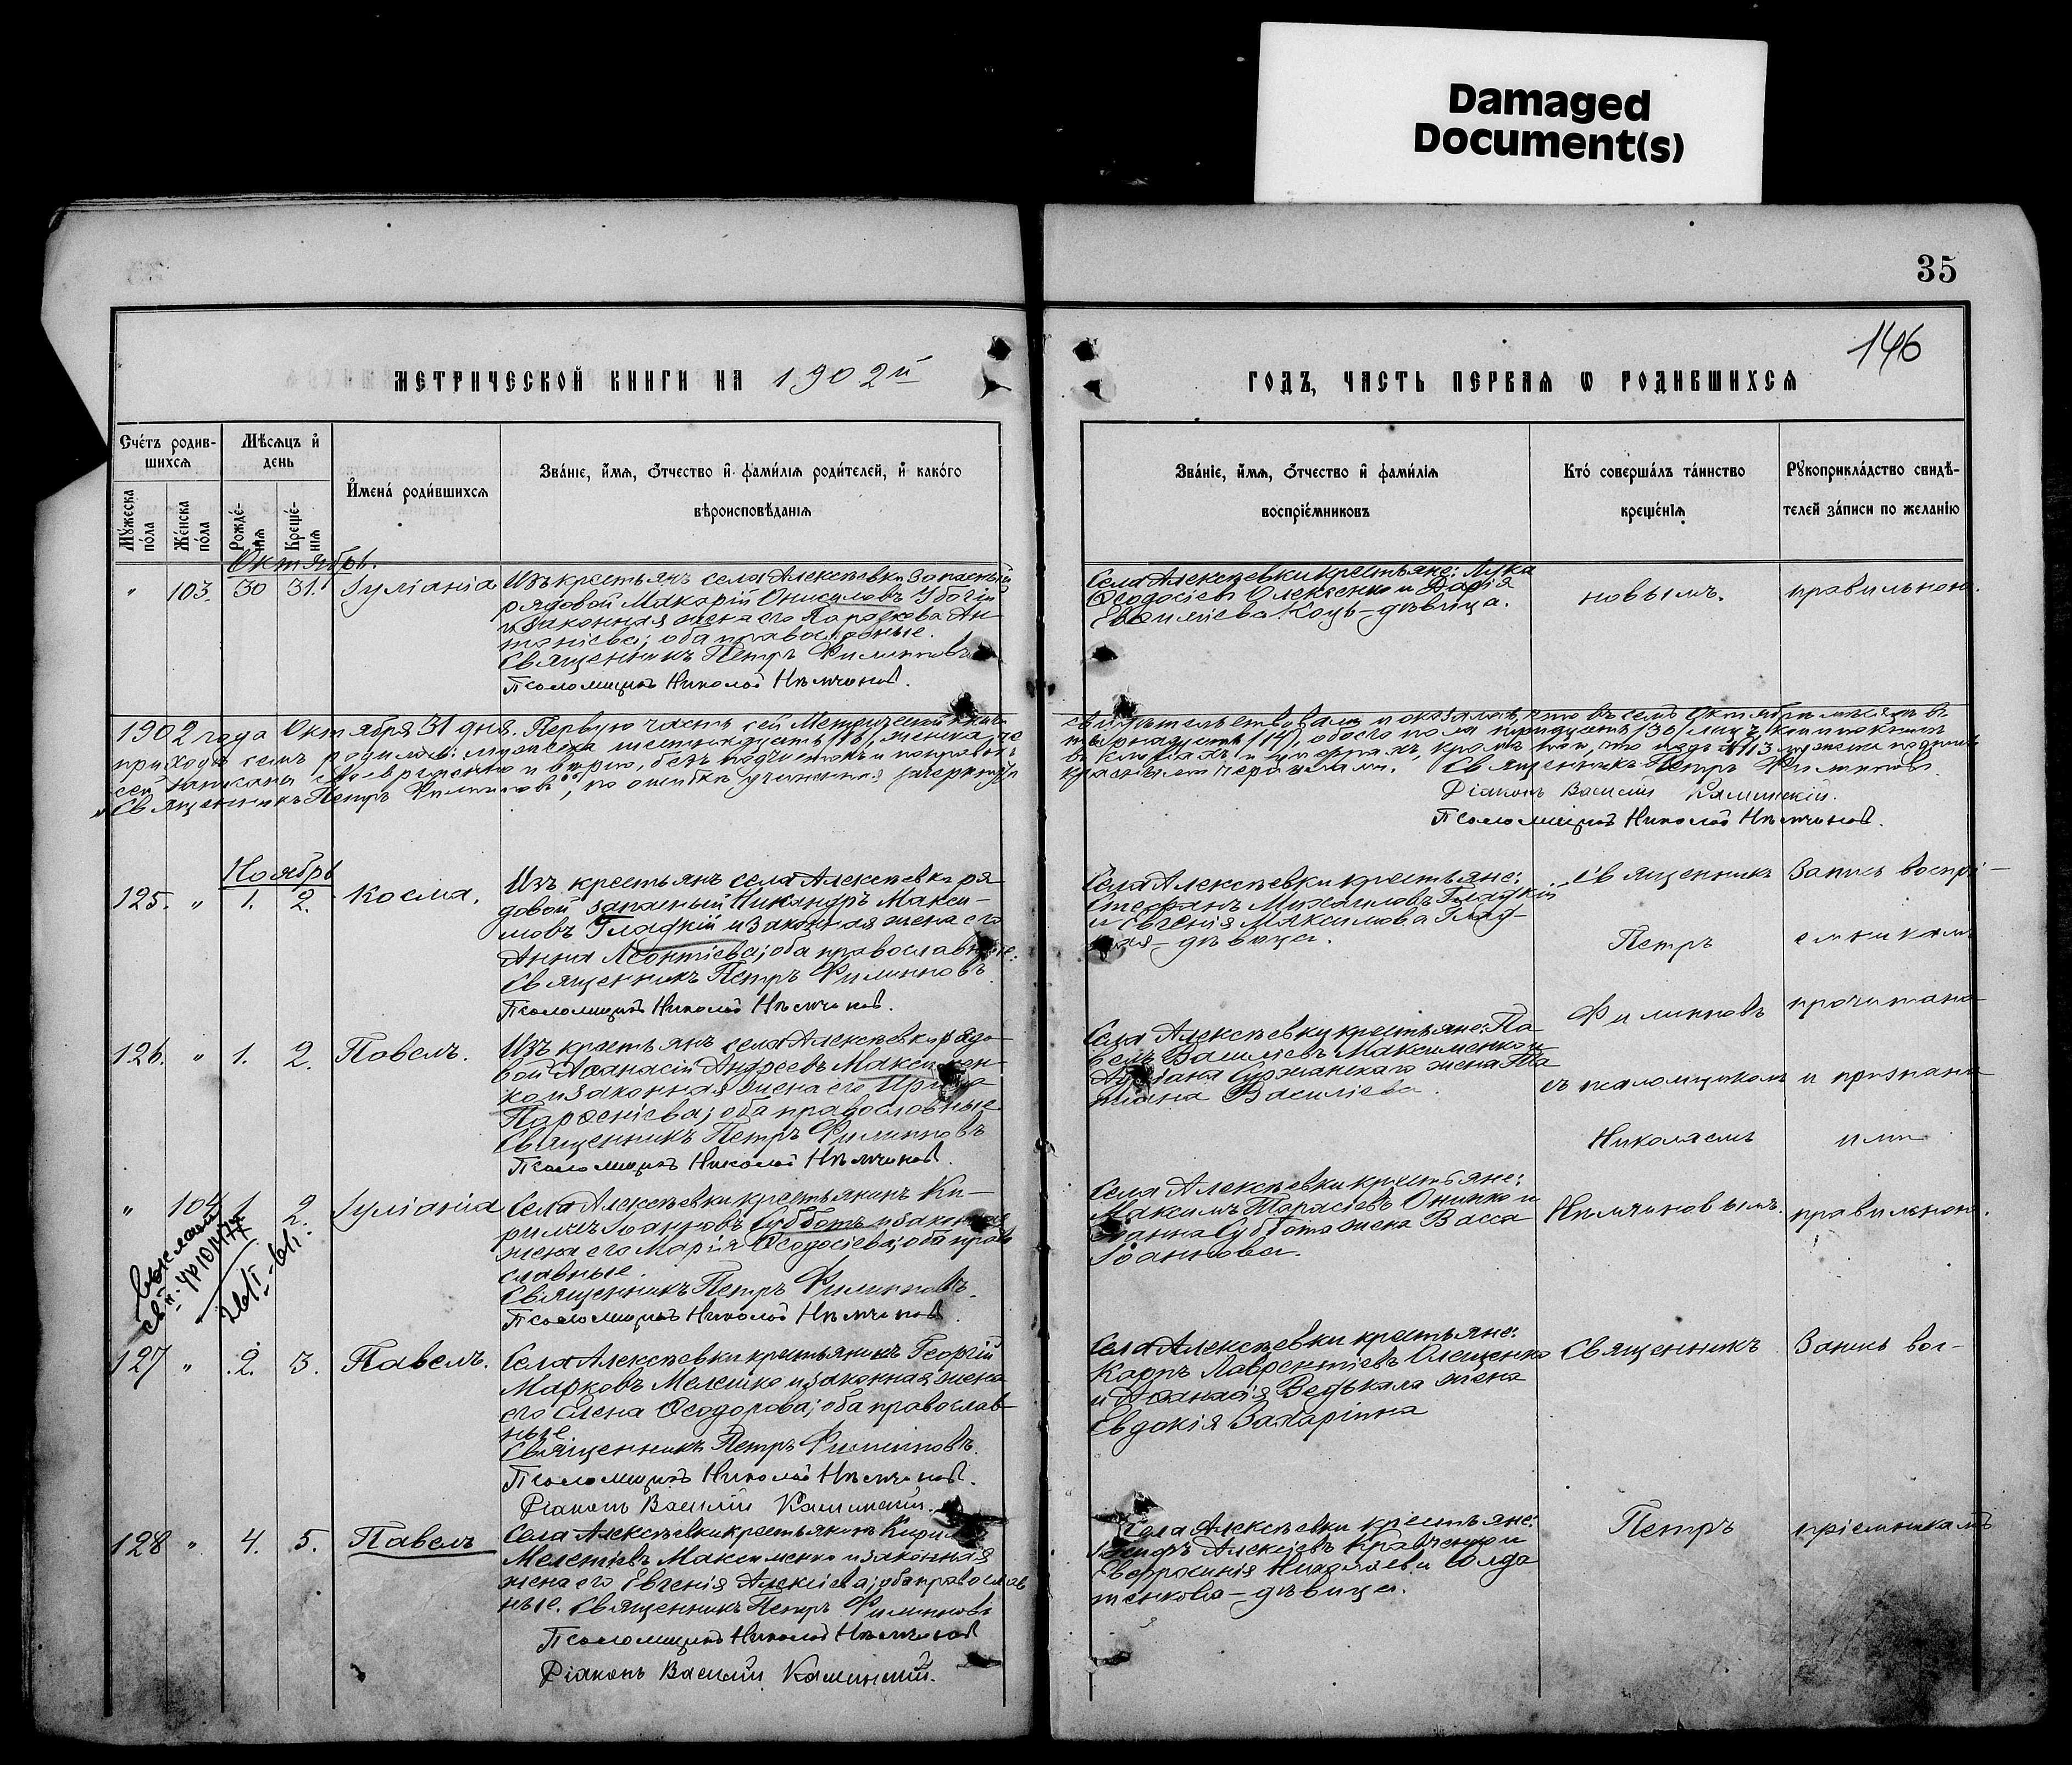 Damaged
Document(s)
35
146
МЕТРИЧЕСКОЙ КНИГИ НА 1902й
ГОДЪ, ЧАСТЬ ПЕРВАЯ Ѡ РОДИВШИХСЯ
Счётъ родив-
шихся
Мѣсяцъ и
день
Мужеска
пола
Женска
пола
Рожде-
нія
Креще-
нія
Имена родившихся
Званіе, имя, отчество и фамилія родителей, и какого
вѣроисповѣданія
Званіе, имя, отчество и фамилія
воспріемниковъ
Кто совершалъ таинство
крещенія
Рукоприкладство свидѣ-
телей записи по желанію
Октябрь.
" 103. 30 31. Іуліанія
Изъ крестьянъ села Алексѣевки запасный
рядовой Макарій Онисимовъ Убогій
и законная жена его Параскева Ан-
тоніева; оба православные.
Священникъ Петръ Филипповъ
Псаломщикъ Николай Нѣмчинов.
Села Алексѣевки крестьяне: Лука
Ѳеодосіевъ Олексенко и Дарія
Евѳиміева Коць - дѣвица.
новымъ.
правильною.
1902 года Октября 31 дня. Первую часть сей Метрической книги
свидѣтельствовали и оказалось, что въ семъ Октябрѣ мѣсяцѣ въ
приходѣ семъ родилось: мужеска шестнадцать /16/, женска че
тырнадцать /14/, обоего пола тридцать /30/ лицъ, кои по книгѣ
сей записаны своевременно и вѣрно, безъ подчистокъ и поправокъ
красными чернилами. Священникъ Петръ Филипповъ
"Священникъ Петръ Филипповъ", по ошибкѣ учиненная зачеркнута
Діаконъ Василій Калинскій.
Псаломщикъ Николай Нѣмчинов.
Ноябрь
125. " 1. 2. Косма.
Изъ крестьянъ села Алексѣевки ря
довой запасный Никандръ Макси-
мовъ Гладкій и законная жена его
Анна Леонтіева; оба православные.
Священникъ Петръ Филипповъ
Псаломщикъ Николай Нѣмчинов.
Села Алексѣевки крестьяне:
Стефанъ Михаиловъ Гладкій
и Евгенія Максимова Глад-
кая - дѣвица.
Священникъ
Петръ
Запись воспрі-
емникамъ
126. " 1. 2. Павелъ.
Изъ крестьянъ села Алексѣевки рядо-
вой Аѳанасій Андреевъ Максимен-
ко и законная жена его Ирина
Парѳеніева; оба православные
Священникъ Петръ Филипповъ
Псаломщикъ Николай Нѣмчинов.
Села Алексѣевки крестьяне: Па-
велъ Василіевъ Максименко и
жена Та
тіана Василіева.
Филипповъ
съ псаломщикомъ
Николаемъ
прочитана
и признана
ими
" 104 1. 2. Іуліанія
Села Алексѣевки крестьянинъ Ки-
риллъ Іоанновъ Субботъ и законная
жена его Марія Ѳеодосіева; оба право
славные.
Священникъ Петръ Филипповъ.
Псаломщикъ Николай Нѣмчинов.
Села Алексѣевки крестьяне:
Максимъ Тарасіевъ Онипко и
Іоанна Суббота жена Васса
Іоаннова.
Нѣмчиновымъ.
правильною.
127 " 2. 3. Павелъ.
Села Алексѣевки крестьянинъ Георгій
Марковъ Мелешко и законная жена
его Елена Ѳеодорова; оба православ-
ные.
Священникъ Петръ Филипповъ.
Псаломщикъ Николай Нѣмчинов.
Діаконъ Василій Калинскій.
Села Алексѣевки крестьяне:
Карпъ Лаврентіевъ Олещенко
и Аѳанасія Ведькала жена
Евдокія Захаріина
Священникъ
Запись вос-
128 " 4. 5. Павелъ
Села Алексѣевки крестьянинъ Кириллъ
Мелетіевъ Максименко и законная
жена его Евгенія Алексіева; оба православ
ные. Священникъ Петръ Филипповъ
Псаломщикъ Николай Нѣмчинов
Діаконъ Василій Калинскій.
Села Алексѣевки крестьяне:
Іосифъ Алексіевъ Кравченко и
Евфросинія Николаева Солда
тенкова - дѣвица.
Петръ
пріемникамъ